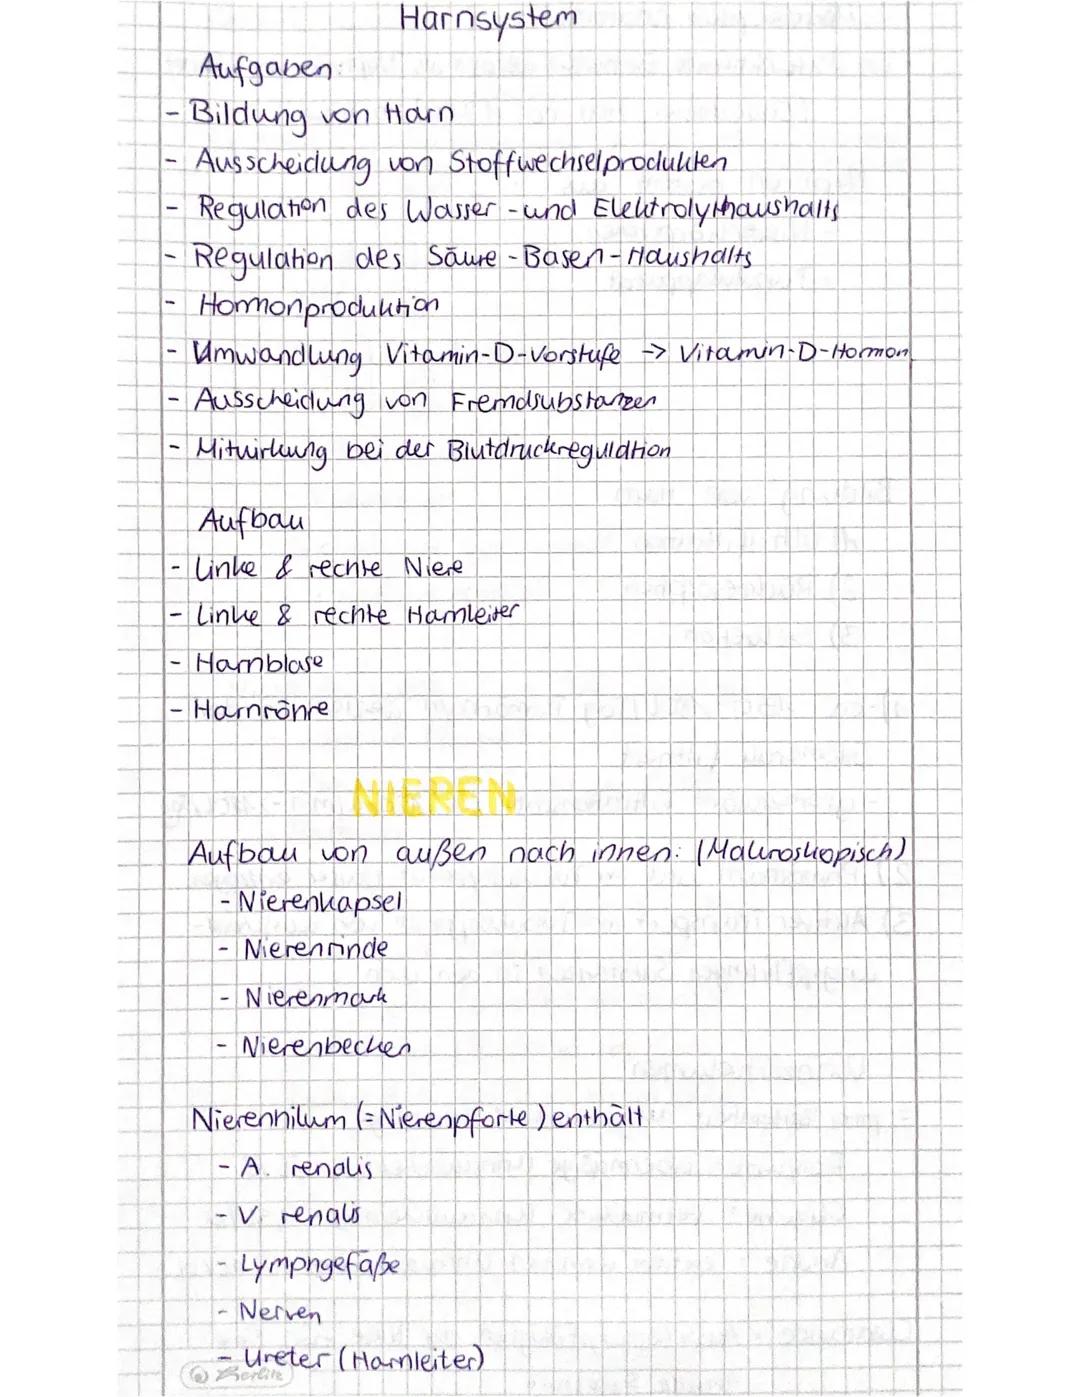 Harnsystem
Aufgaben:
- Bildung von Harn
- Ausscheidung von Stoffwechselprodukten
- Regulation des Wasser-und Elektrolythaushalts
- Regulation des Säure-Basen-Haushalts
- Hormonproduktion
- Umwandlung Vitamin-D-Vorstufe -> Vitamin-D-Hormon
- Ausscheidung von Fremdsubstanzen
- Mitwirkung bei der Blutdruckregulation
Aufbau
- Linke & rechte Niere
- Linke & rechte Harnleiter
- Harnblase
- Harnröhre
NIEREN
Aufbau von außen nach innen: (Makroskopisch)
- Nierenkapsel
- Nierenrinde
- Nierenmark
- Nierenbecken
Nierenhilum (=Nierenpforte) enthält
- A. renalis
- V. renalis
- Lymphgefäße
- Nerven
- Ureter (Harnleiter)